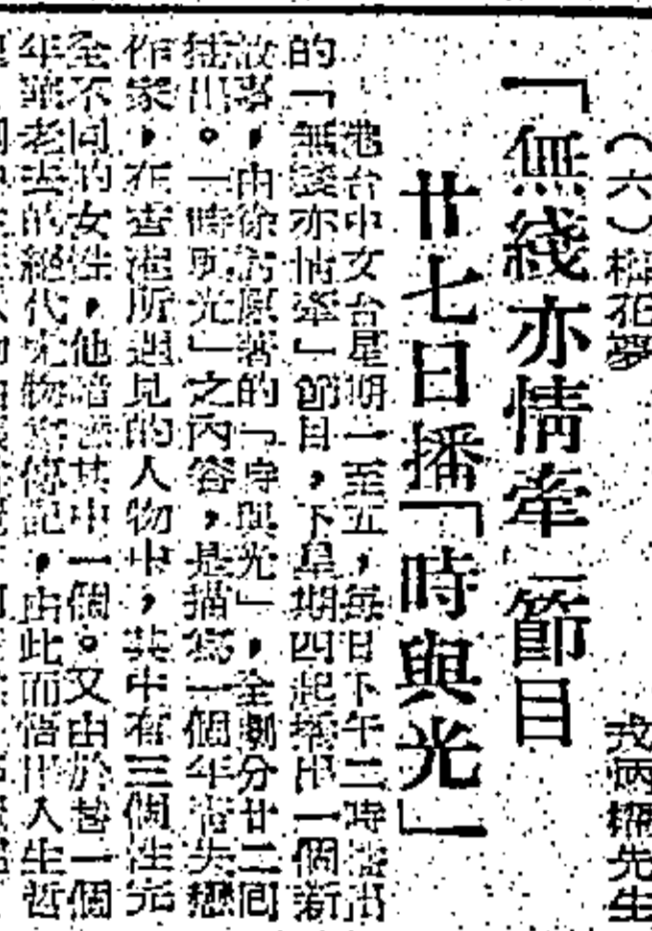 （六）桃花夢
戎炳輝先生
「無綫亦情牽」節目
廿七日播「時與光」
港台中文台星期一至五，每日下午二時播出
的「無綫亦情牽」節目，下星期四起播出一個新
故事，由徐訏原著的「時與光」，全劇分廿二回
播出。「時與光」之內容，是描寫一個年青失戀
作家，在香港所遇見的人物中，其中有三個性完
全不同的女性，他暗戀其中一個。又由於替一個
年華老去的絕代尤物寫傳記，由此而悟出人生哲